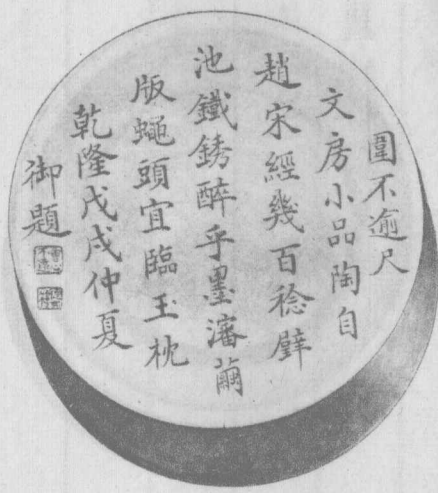 圍不逾尺
文房小品陶自
趙宋經幾百稔壁
池鐵銹醉乎墨瀋繭
版蠅頭宜臨玉枕
乾隆戊戌仲夏
御題